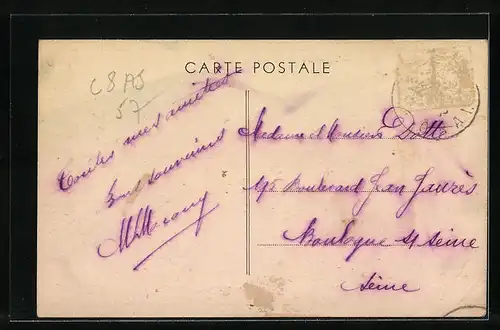 CARTE POSTALE
C8AJ
57
Toutes mes amitiés
souvenirs
Madame et Monsieur Dotte
Boulevard Jean Jaurès
Boulogne s/ Seine
Seine